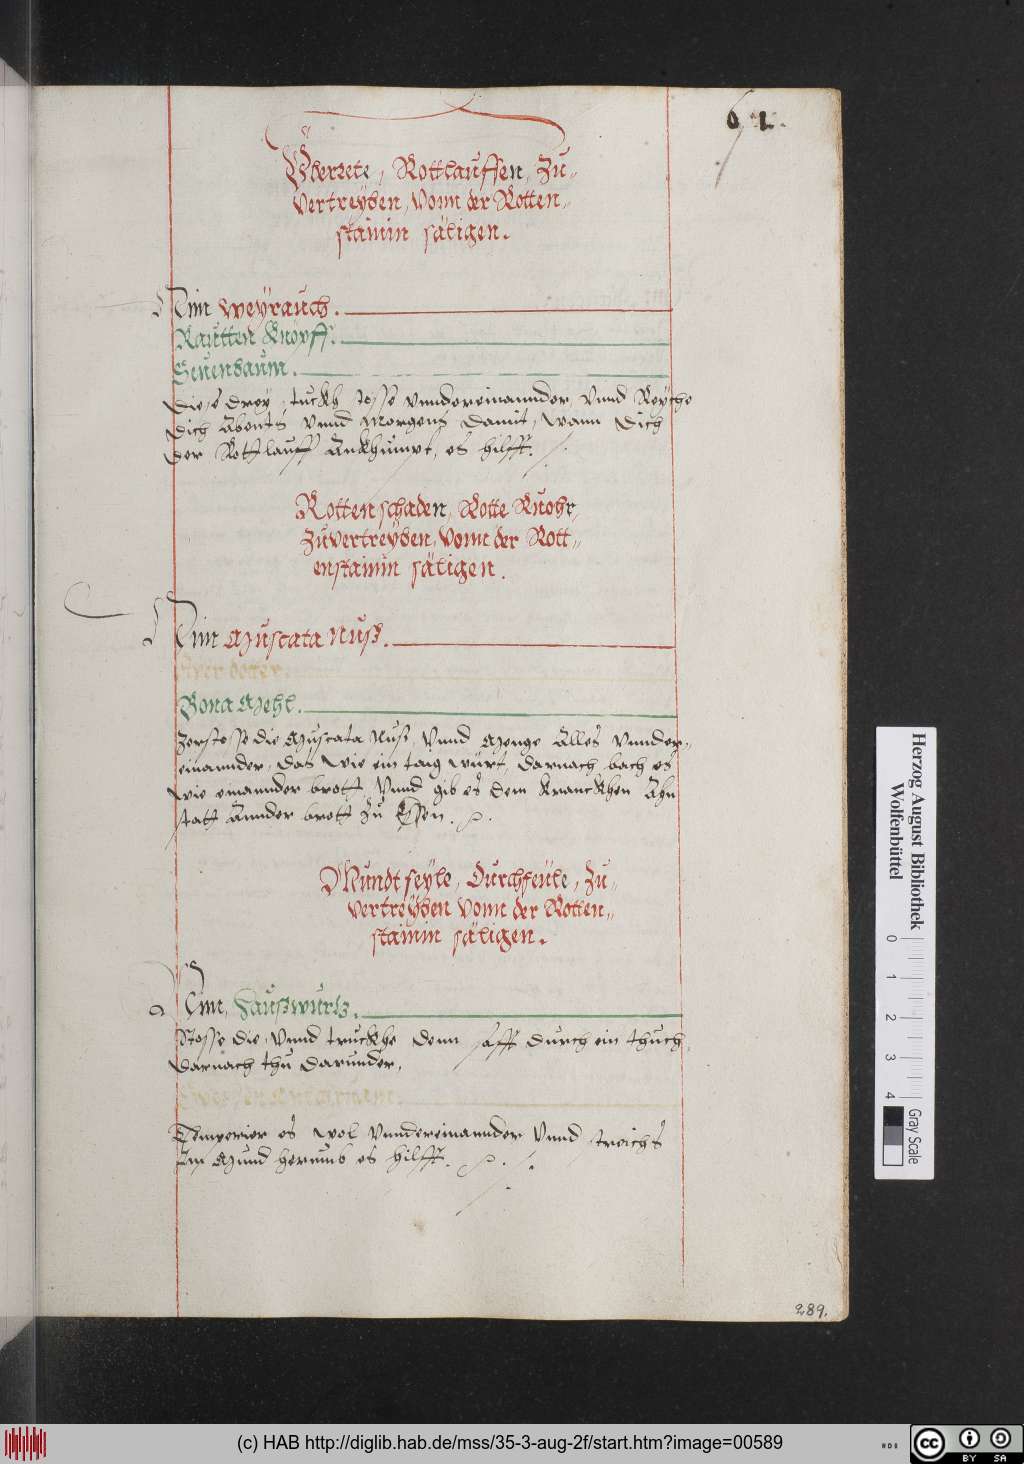 61.
Überrete, Rottlauffen, Zu-
vertreyben, Vonn der Rotten-
stainin säligen.
Nim Weyrauch.
Rautten Knöpff.
Seuenbaum.
Diese drey stuckh stosse vnndereinannder, vnnd Reyche
Dich Abents vnnd Morgens damit, Wann Dich
der Rottlauff Ankhümpt, es hilfft.
Rottenschaden, Rotte Ruohr,
Zuvertreyben, Vonn der Rott-
enstainin säligen.
Nim Muscata Nuß.
Ayer dotter.
Bona Mehl.
Zerstosse die Muscata Nuß, Vnnd Menge Alles vnnder-
einannder, das wie ein taig wurt, darnach bach es
wie ein annder brott, Vnnd gib es dem kranckhen Ahn
statt Annder brott Zu Essen.
Mundt feyle, Durchfeüle, Zu-
vertreyben Vonn der Rotten-
stainin säligen.
Nim, Haußwurtz.
Stosse die, Vnnd truckhe denn safft durch ein thuch
darnach thu darunder,
Temperier es wol Vnndereinannder Vnnd streichs
Im Mund herumb es hilfft.
289.
Herzog August Bibliothek
Wolfenbüttel
0 1 2 3 4
Gray Scale
(c) HAB http://diglib.hab.de/mss/35-3-aug-2f/start.htm?image=00589
cc BY SA